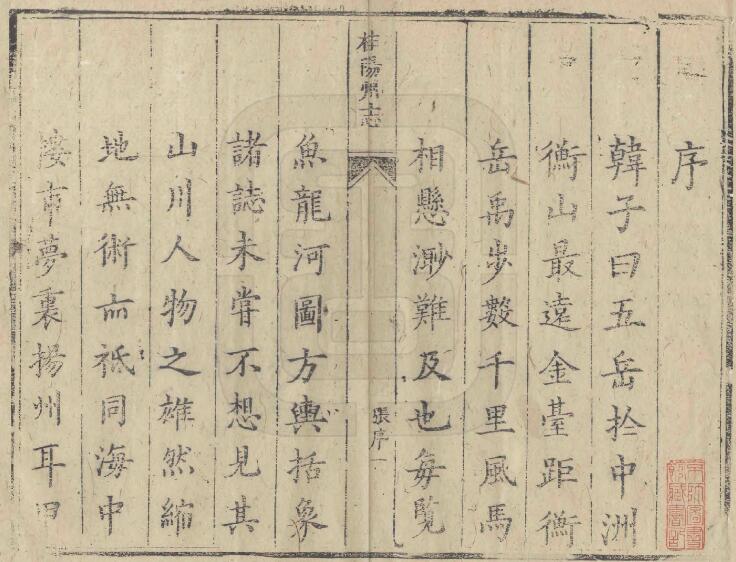 序
韓子曰五岳扵中洲
衡山最遠金臺距衡
岳禹步數千里風馬
相懸渺難及也每覽
桂陽州志
張序一
魚龍河圖方輿括象
諸誌未甞不想見其
山川人物之雄然縮
地無術而祗同海中
夢裏揚州耳